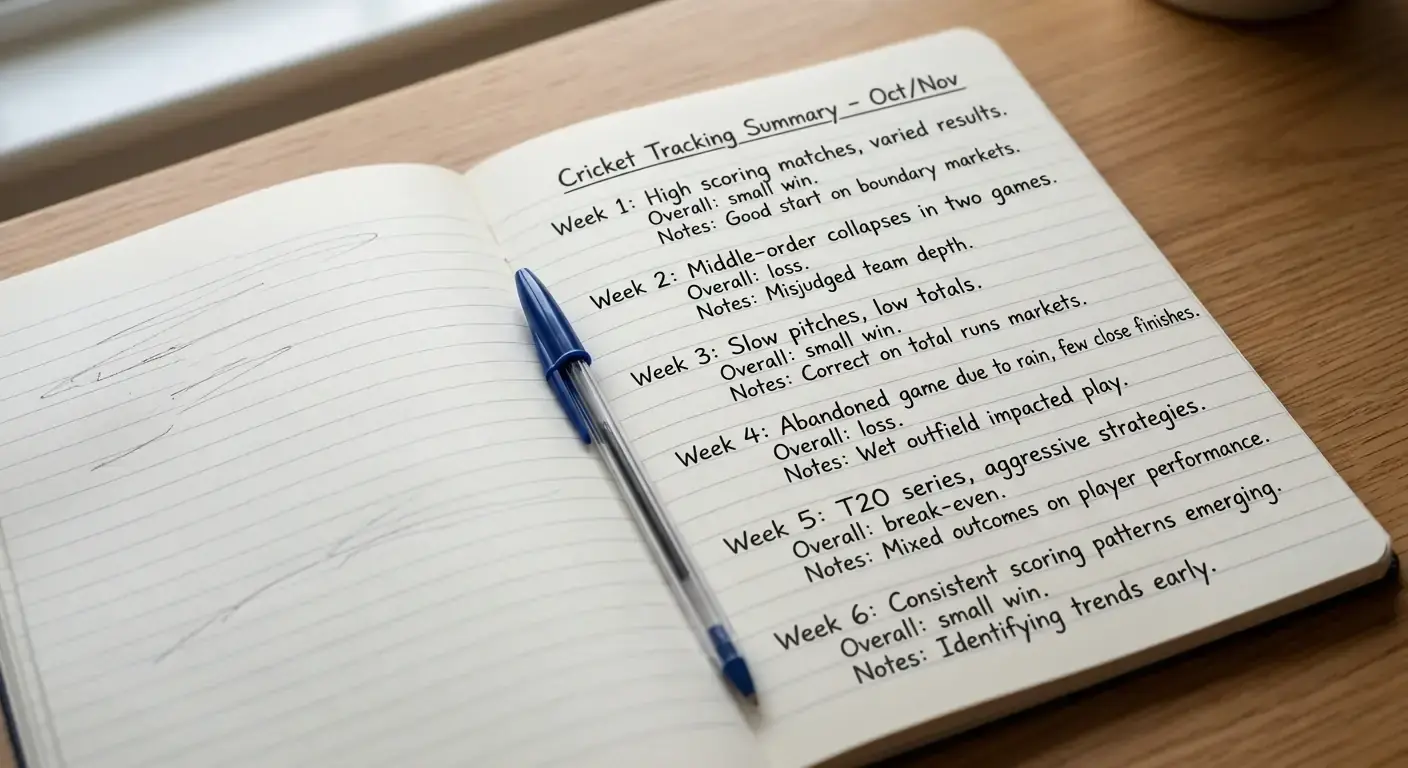 Cricket Tracking Summary - Oct/Nov
Week 1: High scoring matches, varied results.
Overall: small win.
Notes: Good start on boundary markets.
Week 2: Middle-order collapses in two games.
Overall: loss.
Notes: Misjudged team depth.
Week 3: Slow pitches, low totals.
Overall: small win.
Notes: Correct on total runs markets.
Week 4: Abandoned game due to rain, few close finishes.
Overall: loss.
Notes: Wet outfield impacted play.
Week 5: T20 series, aggressive strategies.
Overall: break-even.
Notes: Mixed outcomes on player performance.
Week 6: Consistent scoring patterns emerging.
Overall: small win.
Notes: Identifying trends early.